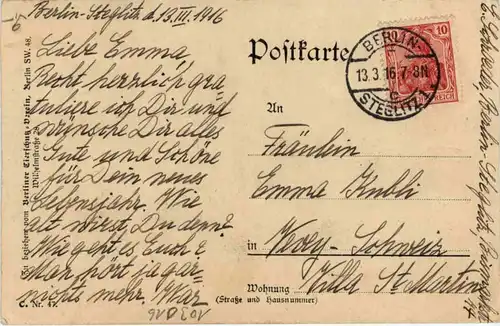 Berlin-Steglitz d. 13.III.1916
Liebe Emma,
Recht herzlich gra
tuliere ich Dir und
wünsche Dir alles
Gute und Schöne
für Dein neues
Lebensjahr. Wie
alt wirst Du denn?
Wie geht es Euch?
Man hört ja gar
nichts mehr. War
C. Nr. 47.
Zu beziehen vom Berliner Tierschutz-Verein, Berlin SW. 48.
Wilhelmstraße 28.
Postkarte
BERLIN-
13.3.16.7-8N
c
STEGLITZ 1
10
REICH
An
Fräulein
Emma
in Vevey-Schweiz
Wohnung Villa St. Martin
(Straße und Hausnummer)
Berlin-Steglitz,